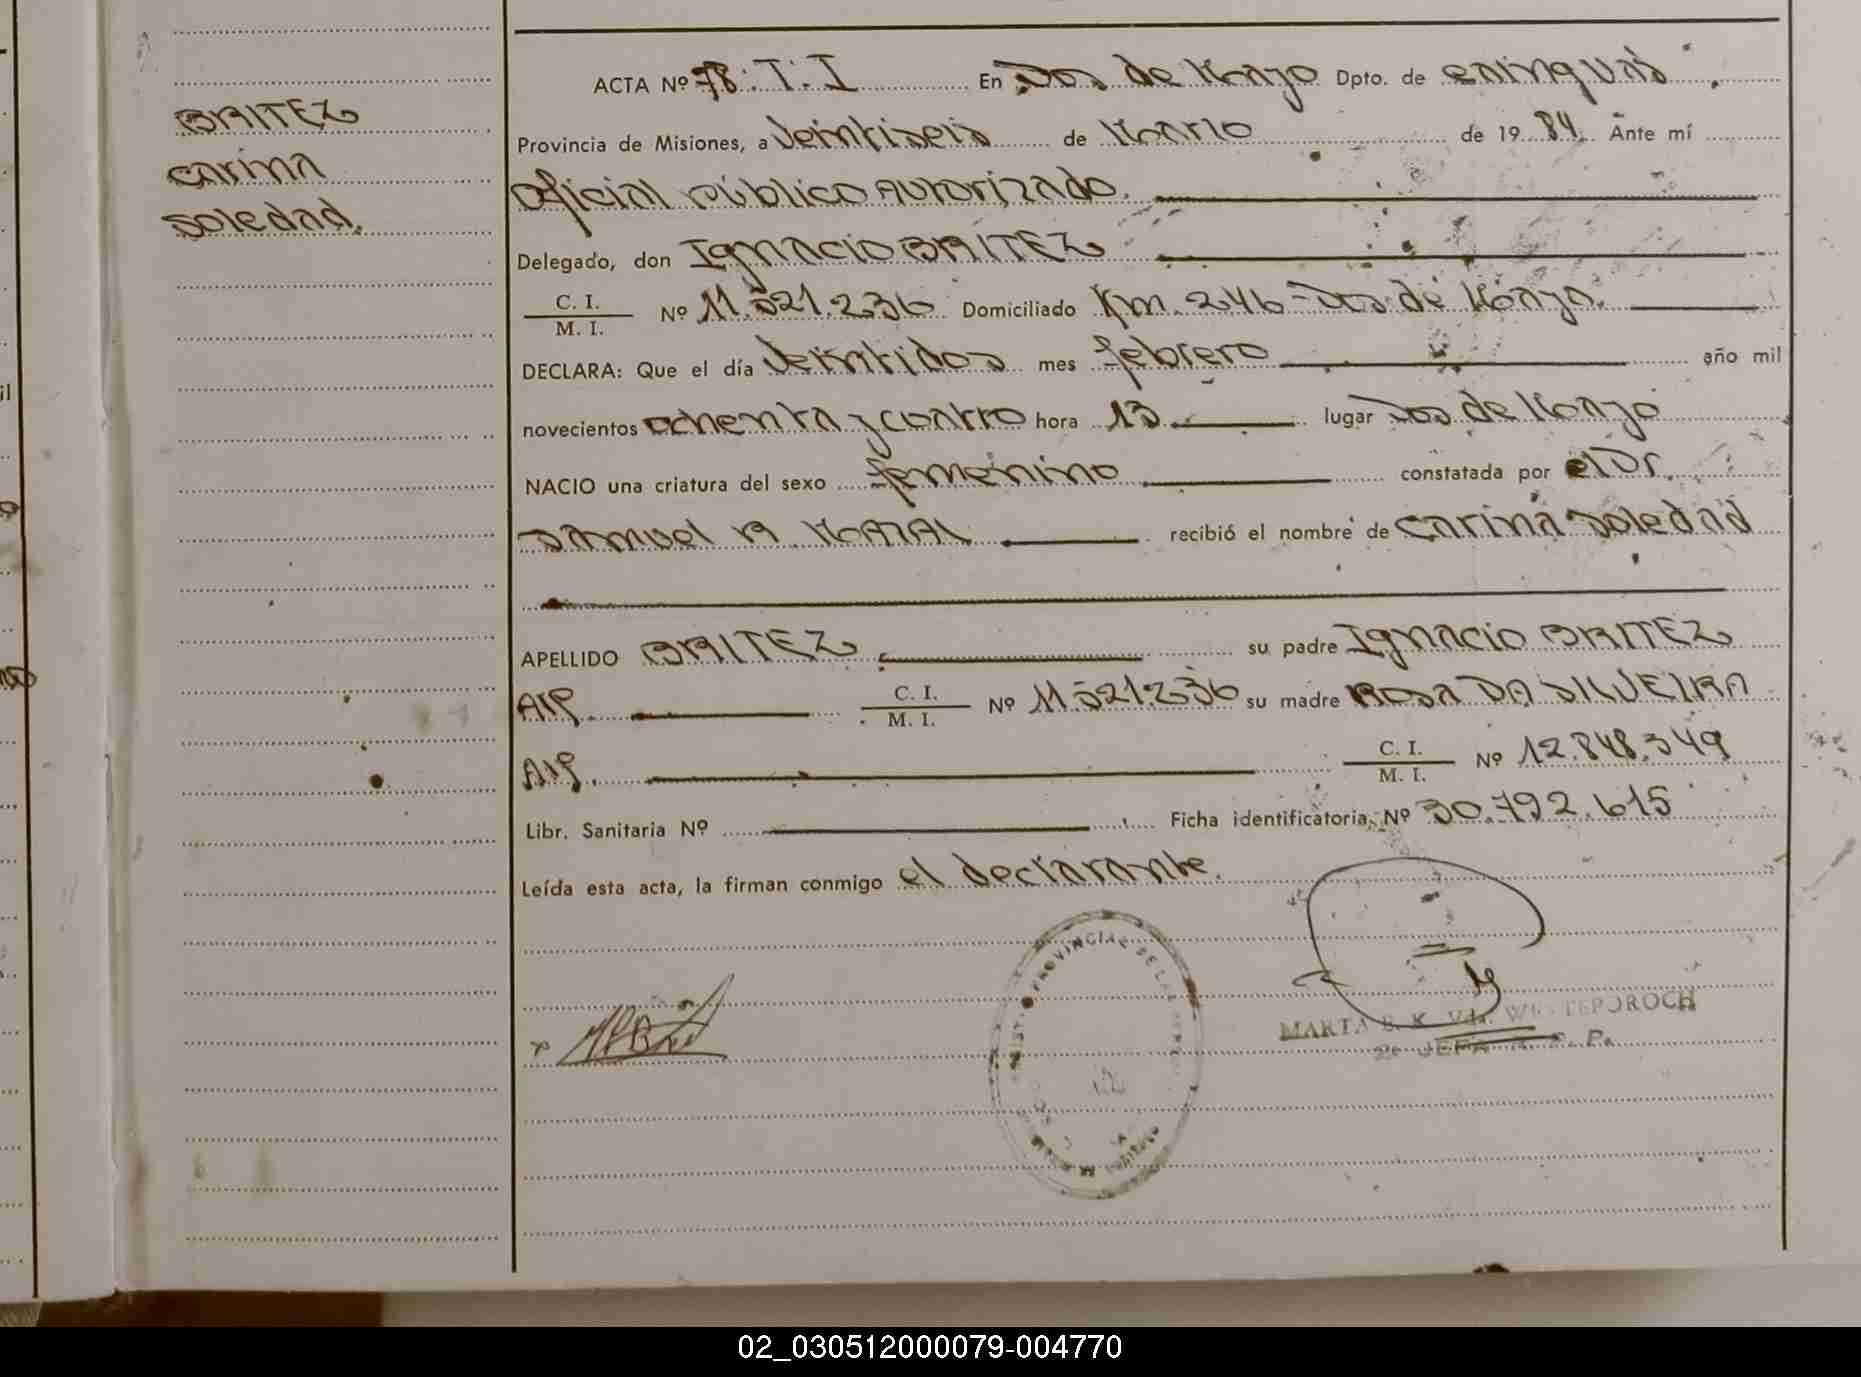 BRITEZ
Carina
Soledad.
ACTA Nº 78. T. I En Dos de Mayo Dpto. de Cainguás.
Provincia de Misiones, a Veintiseis de Marzo de 1984. Ante mí
Oficial Público Autorizado.
Delegado, don Ignacio BRITEZ
C. I.
M. I. Nº 11.521.236 Domiciliado Km. 246 - Dos de Mayo.
DECLARA: Que el día Veintidos mes febrero año mil
novecientos ochenta y cuatro hora 13 lugar Dos de Mayo
NACIO una criatura del sexo femenino constatada por el Dr.
Samuel recibió el nombre de Carina Soledad
APELLIDO BRITEZ su padre Ignacio BRITEZ
Arg. C. I.
M. I. Nº 11.521.236 su madre Rosa DA SILVEIRA
Arg. C. I.
M. I. Nº 12.848.349
Libr. Sanitaria Nº Ficha identificatoria, Nº 30.792.615
Leída esta acta, la firman conmigo el declarante.
PROVINCIAL DE LAS
MARTA S. K. Vda.
2º JEFA
02_030512000079-004770